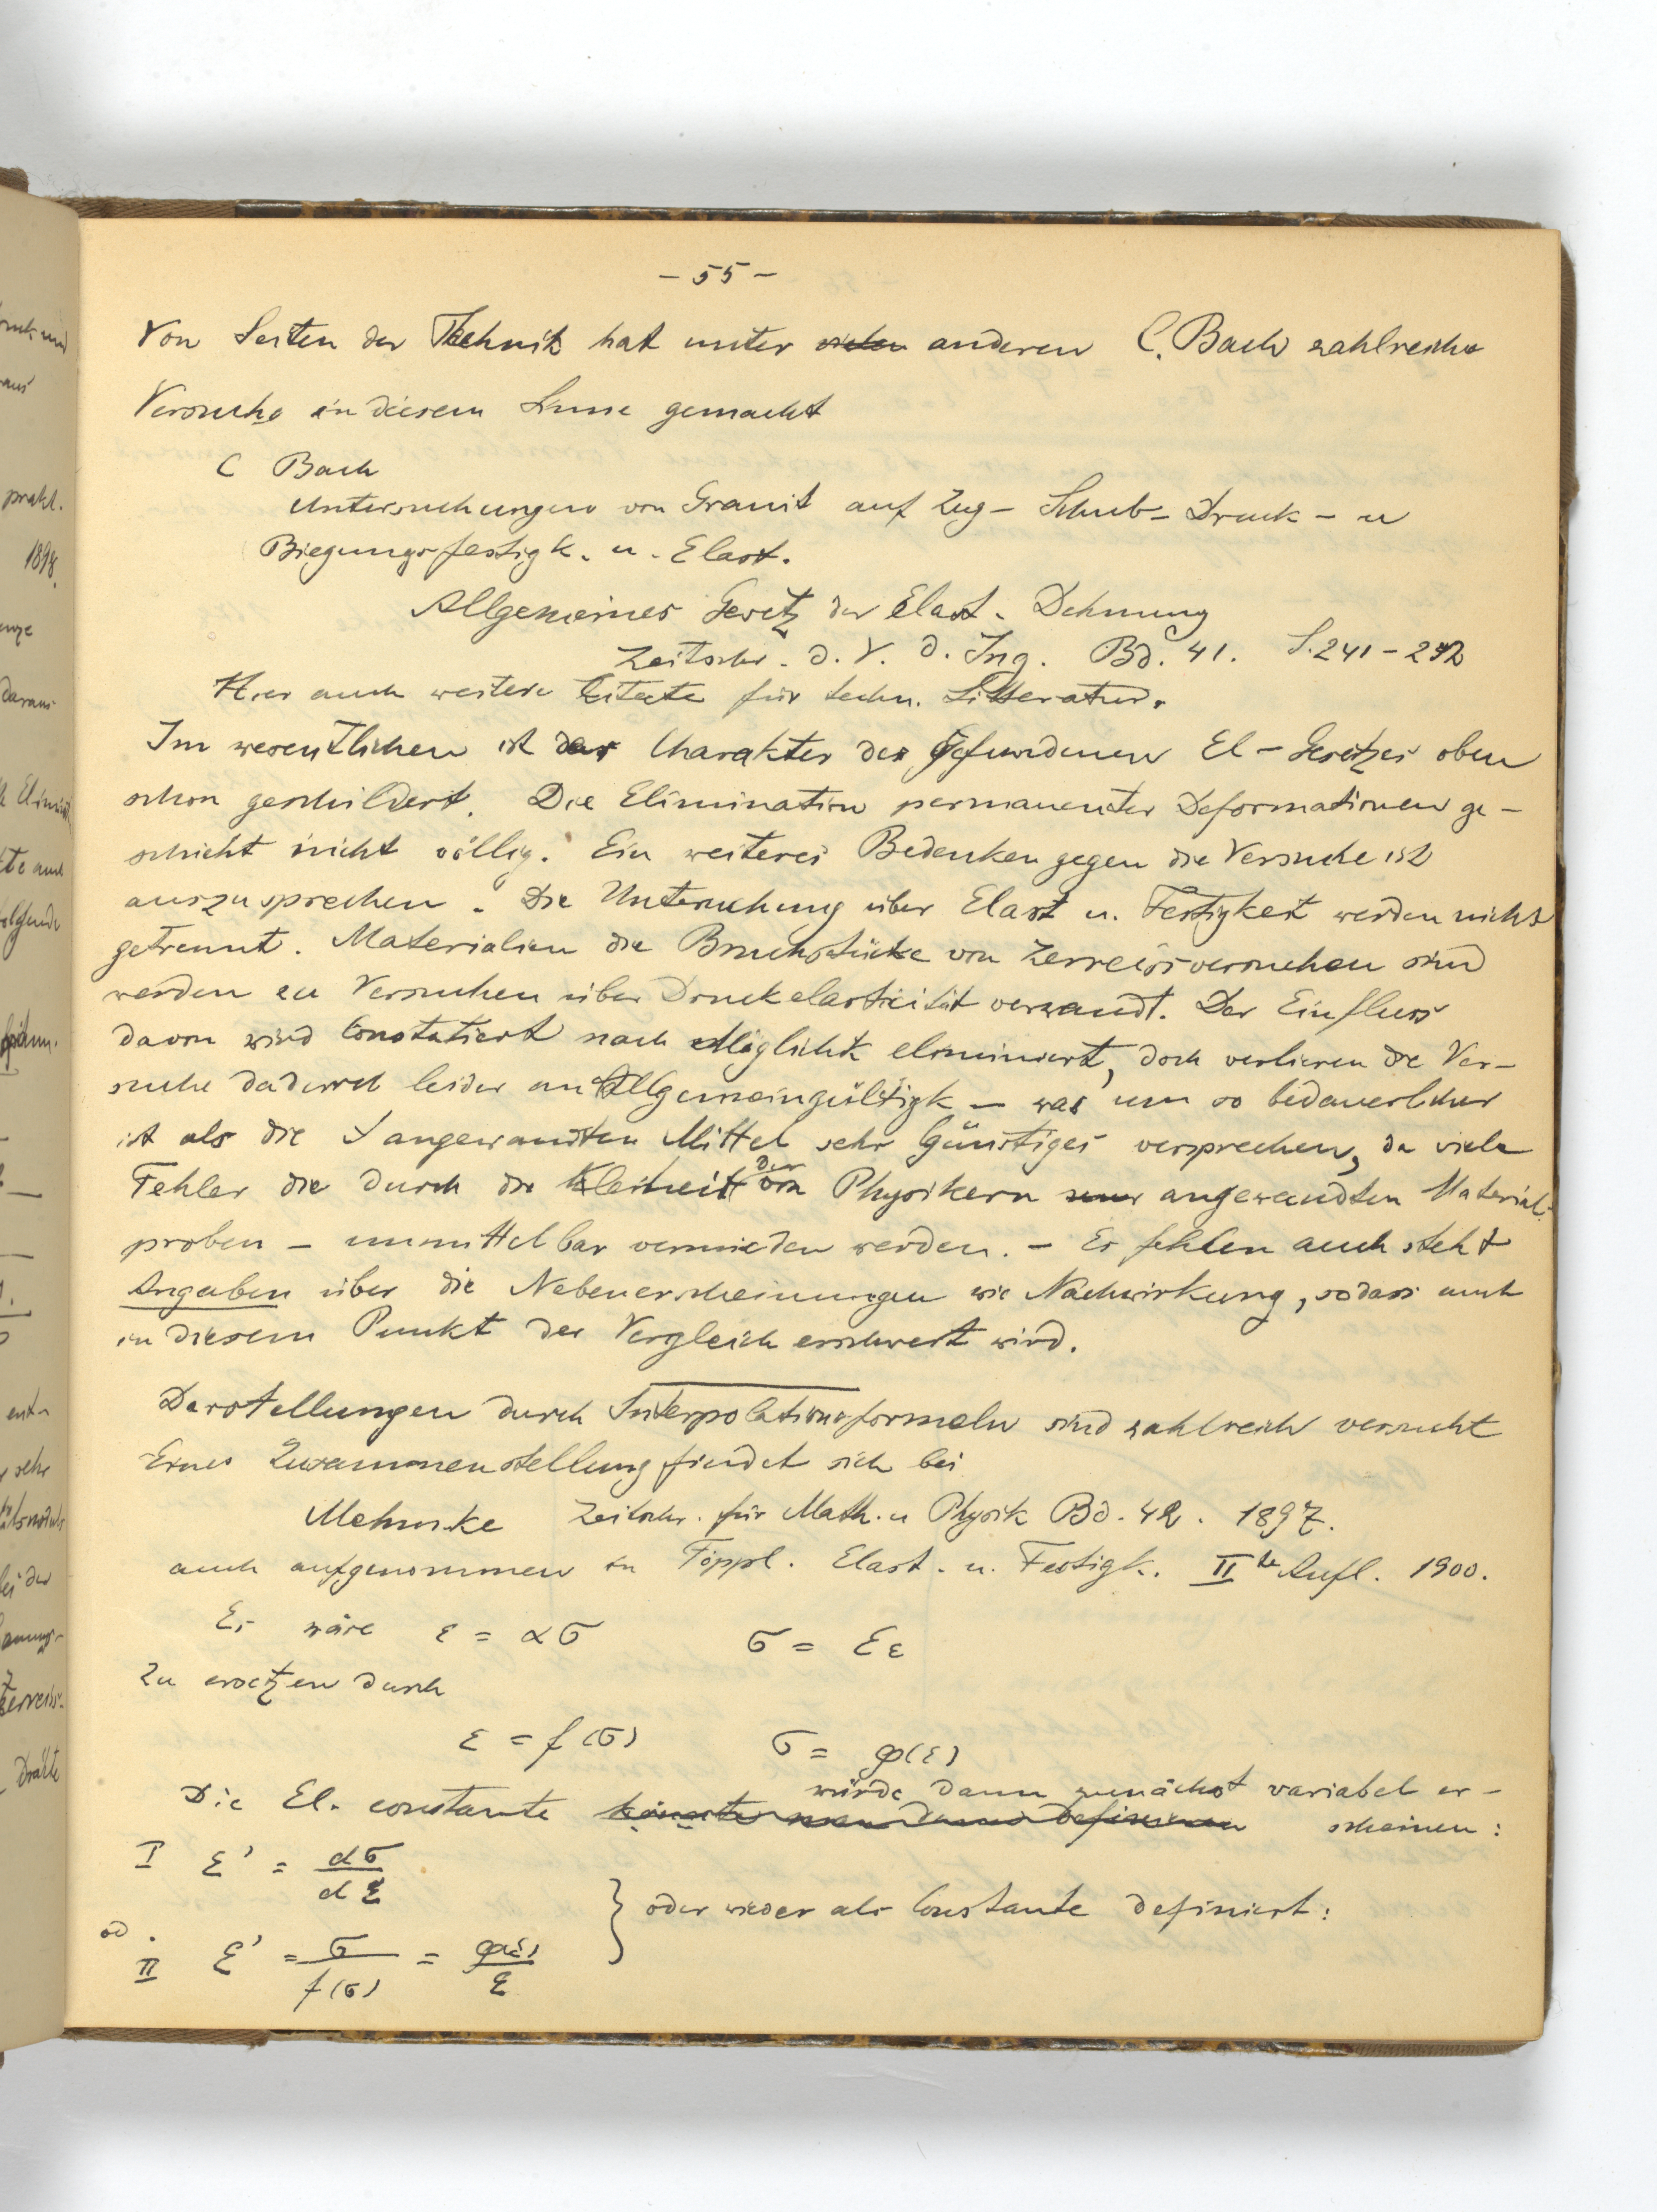 - 55 -
Von Seiten der Technik hat unter anderen C. Bach zahlreiche
Versuche in diesem Sinne gemacht
C Bach
Untersuchungen von Granit auf Zug- Schub- Druck- u
Biegungsfestigk. u. Elast.
Allgemeines Gesetz der Elast. Dehnung
Zeitschr. d. V. d. Ing. Bd. 41. S. 241-252
Hier auch weitere Citate für techn. Litteratur.
Im wesentlichen ist der Charakter des gefundenen El-Gesetzes oben
schon geschildert. Die Elimination permanenter Deformationen ge-
schieht nicht völlig. Ein weiteres Bedenken gegen die Versuche ist
auszusprechen. Die Untersuchung über Elast u. Festigkeit werden nicht
getrennt. Materialien die Bruchstücke von Zerreissversuchen sind
werden zu Versuchen über Druckelasticität verwandt. Der Einfluss
davon wird Constatiert nach Möglichk eliminiert, doch verlieren die Ver-
suche dadurch leider an Allgemeingültigk - was um so bedauerlicher
ist als die angewandten Mittel sehr Günstiges versprechen, da viele
Fehler die durch die Kleinheit der von Physikern angewandten Material-
proben - unmittelbar vermieden werden. - Es fehlen auch
Angaben über die Nebenerscheinungen wie Nachwirkung, sodass auch
in diesem Punkt der Vergleich erschwert wird.
Darstellungen durch Interpolationsformeln sind zahlreich versucht
Eine Zusammenstellung findet sich bei
Mehmke Zeitschr. für Math. u Physik Bd. 42. 1897.
auch aufgenommen in Föppl. Elast. u. Festigk. II te Aufl. 1900.
Es wäre ε = ασ σ = Eε
zu ersetzen durch
ε = f(σ) σ = φ(ε)
würde dann zunächst variabel er-
Die El. constante könnte man dann definieren scheinen:
I E' = dσ/dε
od. } oder wieder als Constante definiert:
II E' = σ/f(σ) = φ(ε)/ε